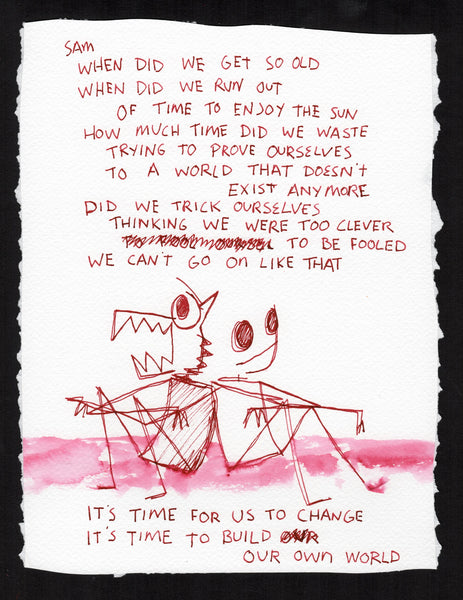 SAM
WHEN DID WE GET SO OLD
WHEN DID WE RUN OUT
OF TIME TO ENJOY THE SUN
HOW MUCH TIME DID WE WASTE
TRYING TO PROVE OURSELVES
TO A WORLD THAT DOESN'T
EXIST ANYMORE
DID WE TRICK OURSELVES
THINKING WE WERE TOO CLEVER
TO BE FOOLED
WE CAN'T GO ON LIKE THAT
IT'S TIME FOR US TO CHANGE
IT'S TIME TO BUILD
OUR OWN WORLD